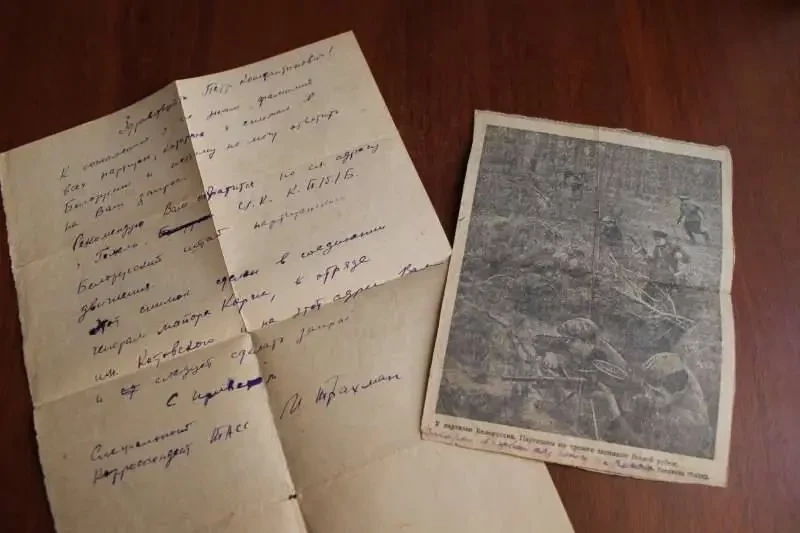 Здравствуйте Петр Константинович!
К сожалению я не знаю фамилии
всех партизан, которых я снимал в
Белоруссии и поэтому не могу ответить
на Ваш запрос.
Рекомендую Вам обратится по сл. адресу
г. Гомель. Ц.К. К.П./б/Б.
Белорусский штаб партизанского
движения.
Этот снимок сделан в соединении
генерал майора, в отряде
им. Котовского и на этот адрес Вам
и следует сделать запрос
С приветом
Специальный И Трахман
Корреспондент ТАСС
У партизан Белоруссии. Партизаны во время занятия